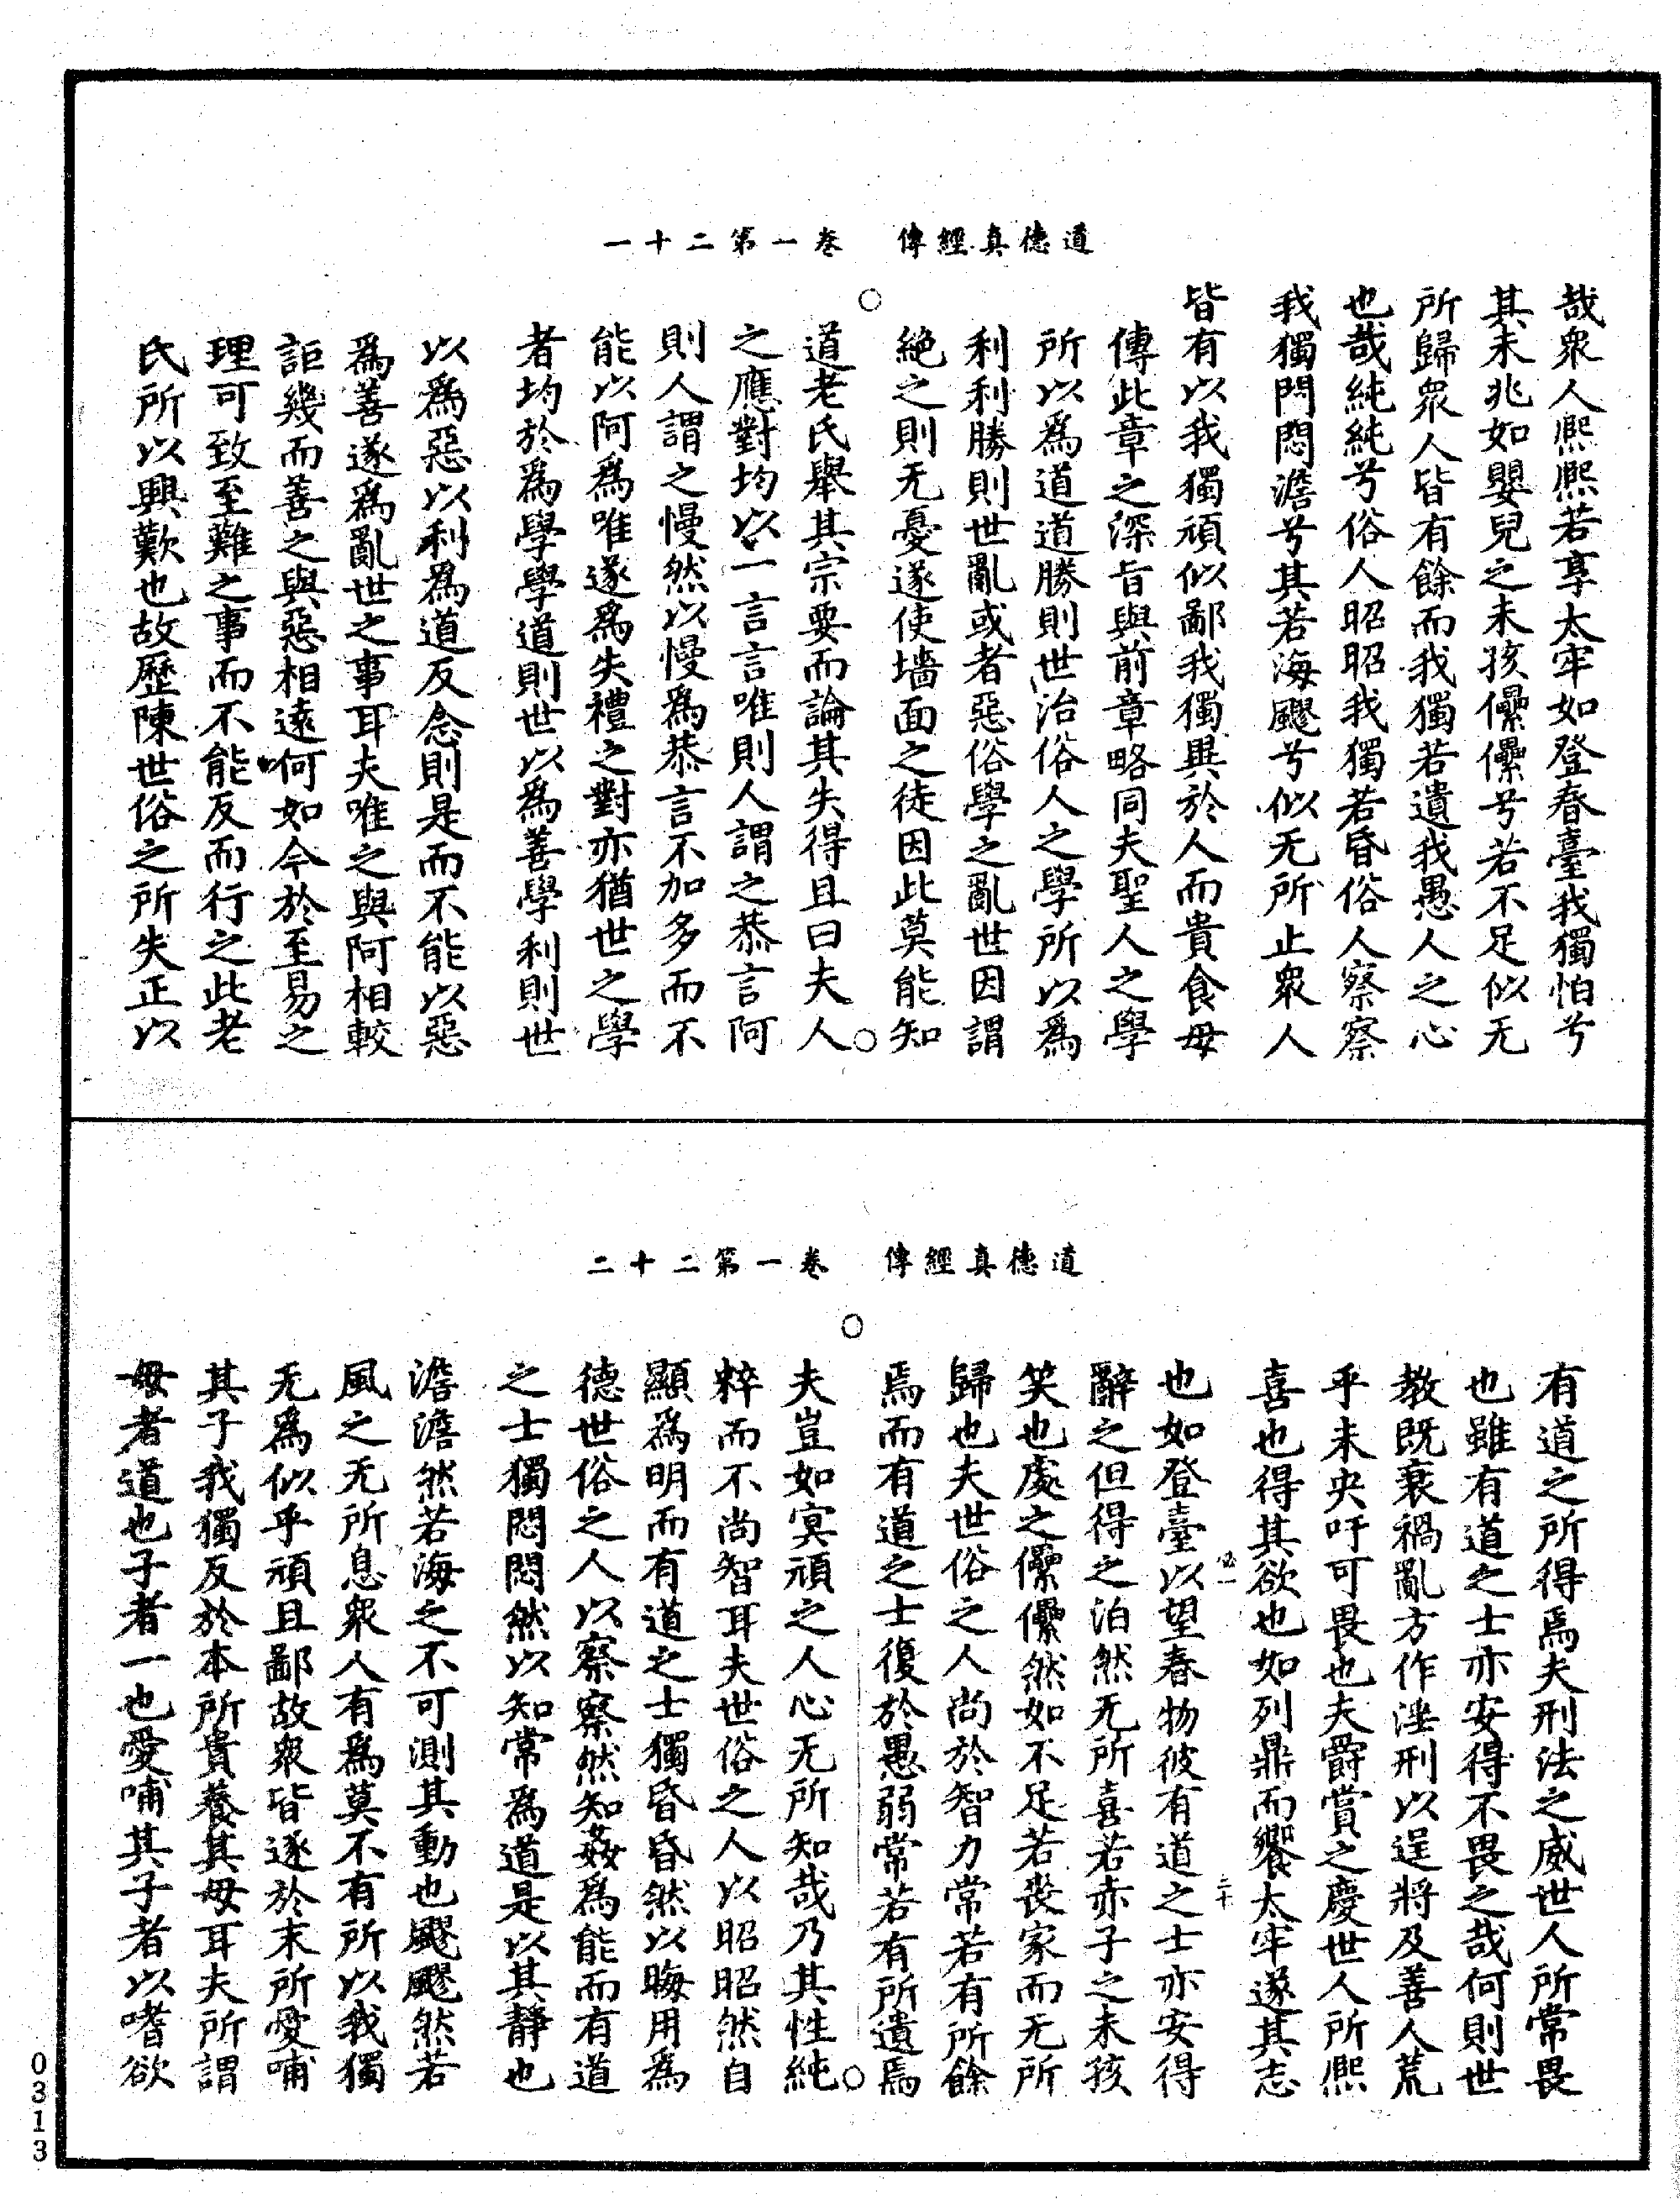 道德真經傳　卷一第二十一
哉衆人熈熈若享太牢如登春臺我獨怕兮
其未兆如嬰兒之未孩儽儽兮若不足似无
所歸衆人皆有餘而我獨若遺我愚人之心
也哉純純兮俗人昭昭我獨若昏俗人察察
我獨悶悶澹兮其若海飂兮似无所止衆人
皆有以我獨頑似鄙我獨異於人而貴食母
傳此章之深旨與前章略同夫聖人之學
所以爲道道勝則世治俗人之學所以爲
利利勝則世亂或者惡俗學之亂世因謂
絶之則无憂遂使墻面之徒因此莫能知
道老氏舉其宗要而論其失得且曰夫人
之應對均以一言言唯則人謂之恭言阿
則人謂之慢然以慢爲恭言不加多而不
能以阿爲唯遂爲失禮之對亦猶世之學
者均於爲學學道則世以爲善學利則世
以爲惡以利爲道反念則是而不能以惡
爲善遂爲亂世之事耳夫唯之與阿相較
詎幾而善之與惡相遠何如今於至易之
理可致至難之事而不能反而行之此老
氏所以興歎也故歷陳世俗之所失正以
道德真經傳　卷一第二十二
有道之所得焉夫刑法之威世人所常畏
也雖有道之士亦安得不畏之哉何則世
教既衰禍亂方作淫刑以逞將及善人荒
乎未央吁可畏也夫爵賞之慶世人所熈
喜也得其欲也如列鼎而饗太牢遂其志
也如登臺以望春物彼有道之士亦安得
辭之但得之泊然无所喜若赤子之未孩
笑也處之儽儽然如不足若喪家而无所
歸也夫世俗之人尚於智力常若有所餘
焉而有道之士復於愚弱常若有所遺焉
夫豈如冥頑之人心无所知哉乃其性純
粹而不尚智耳夫世俗之人以昭昭然自
顯爲明而有道之士獨昏昏然以晦用爲
德世俗之人以察察然知姦爲能而有道
之士獨悶悶然以知常爲道是以其靜也
澹澹然若海之不可測其動也飂飂然若
風之无所息衆人有爲莫不有所以我獨
无爲似乎頑且鄙故衆皆逐於末所愛哺
其子我獨反於本所貴養其母耳夫所謂
母者道也子者一也愛哺其子者以嗜欲
0313